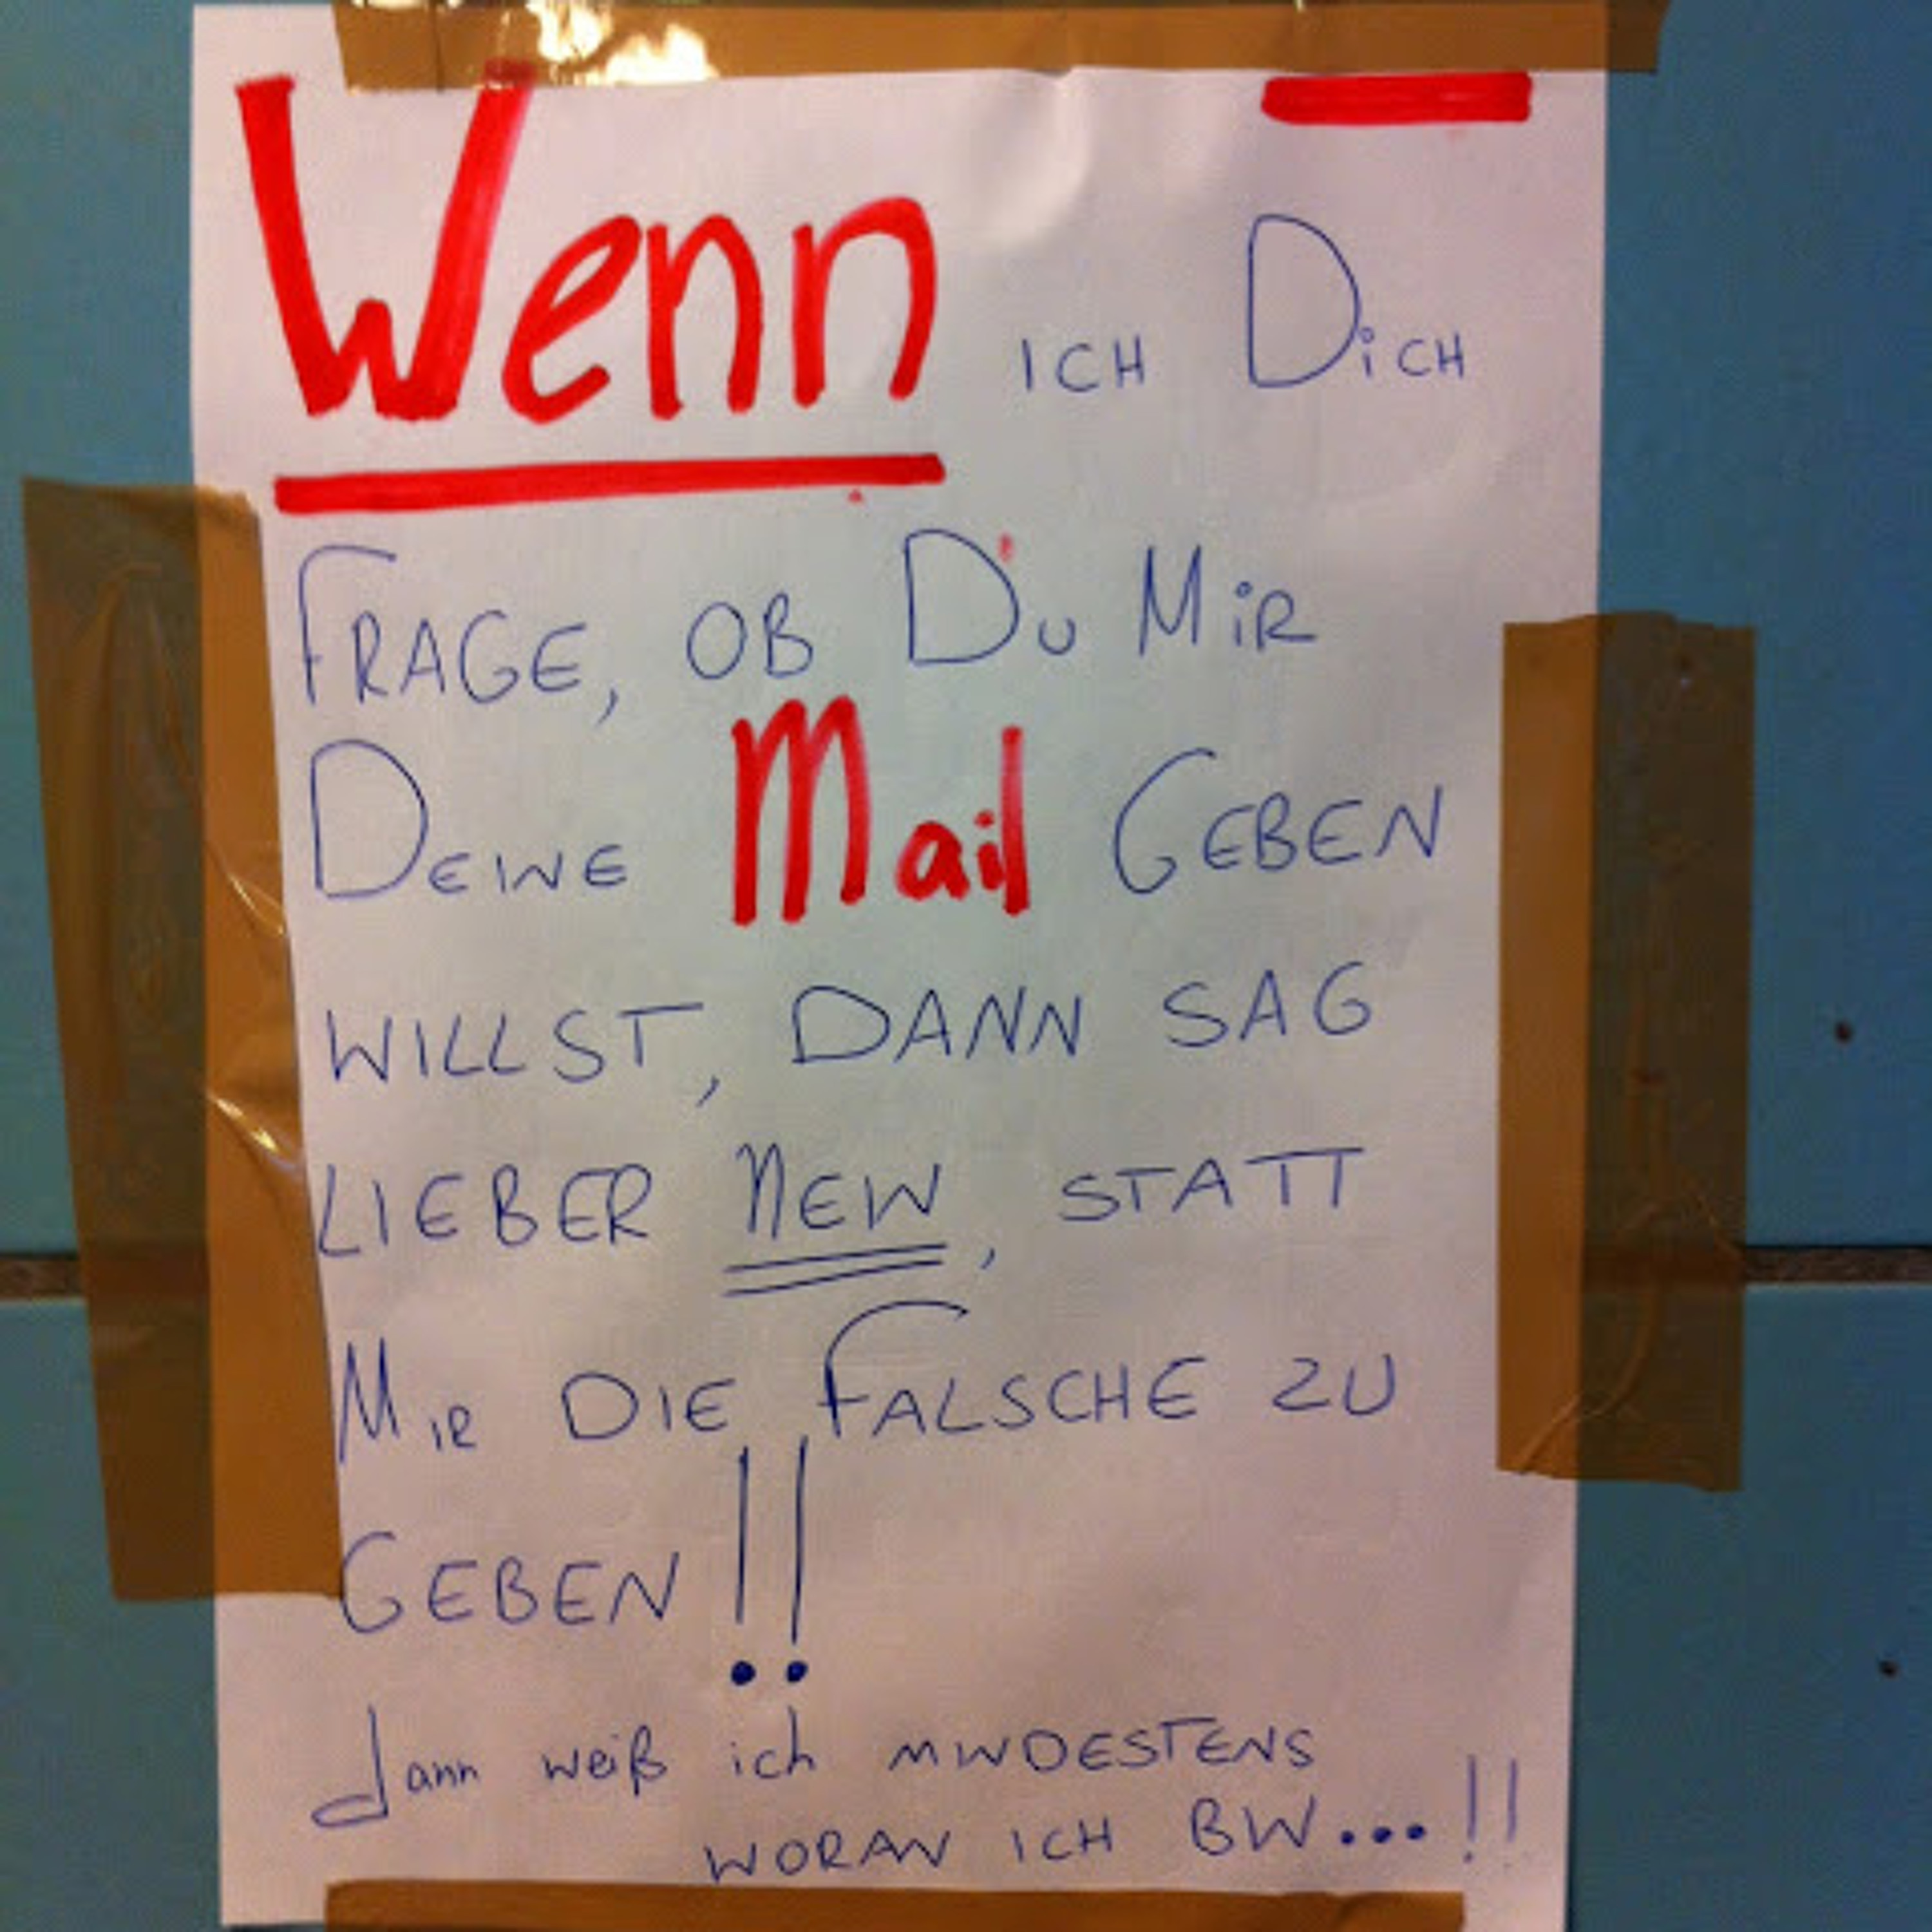 Wenn ICH DiCH
FRAGE, OB DU MiR
DEINE Mail GEBEN
WILLST, DANN SAG
LIEBER NEIN, STATT
MIR DIE FALSCHE ZU
GEBEN!!
dann weiß ich MINDESTENS
WORAN ICH BIN...!!